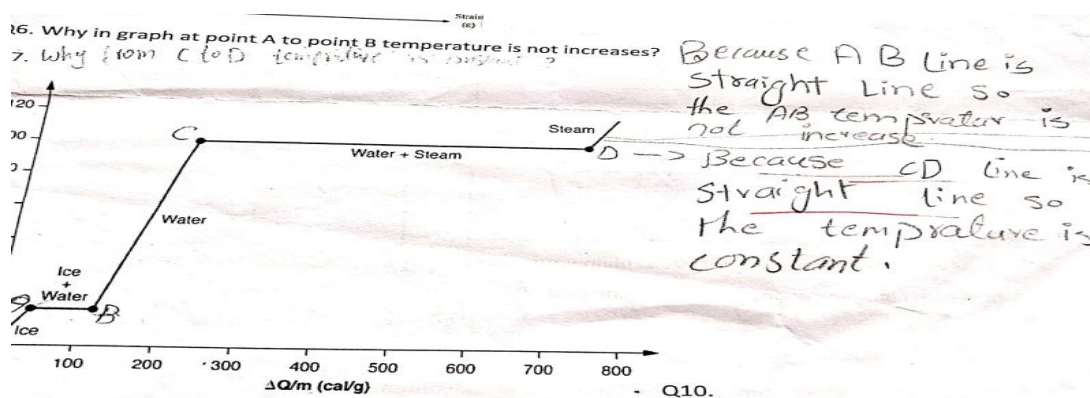 Strain
(ε)
26. Why in graph at point A to point B temperature is not increases?
7. Why from C to D temprture is constant ?
Because A B Line is
Straight Line so
the AB tempratur is
not increase.
120
C
Steam
D -> Because CD line is
Water + Steam
Straight line so
the temprature is
constant.
Water
Ice
+
Water
B
Ice
100 200 300 400 500 600 700 800
ΔQ/m (cal/g)
Q10.